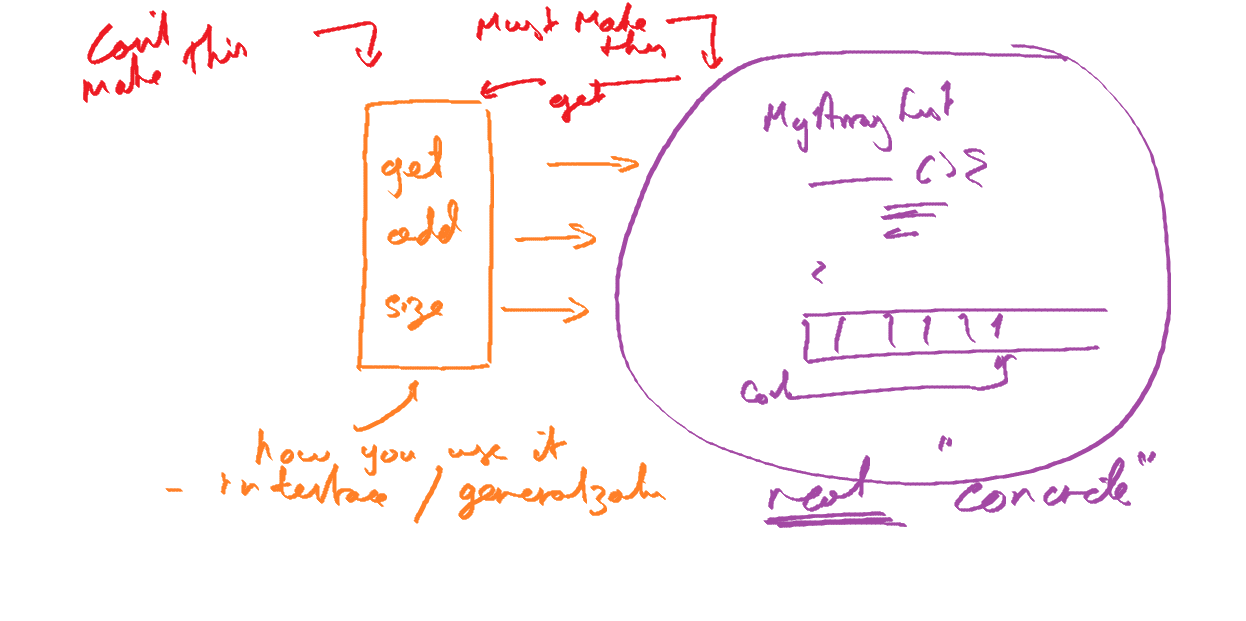 Can't
Make This
Must Make
this
get
get
add
size
how you use it
- interface / generalization
MyArrayList
() {
}
real "concrete"